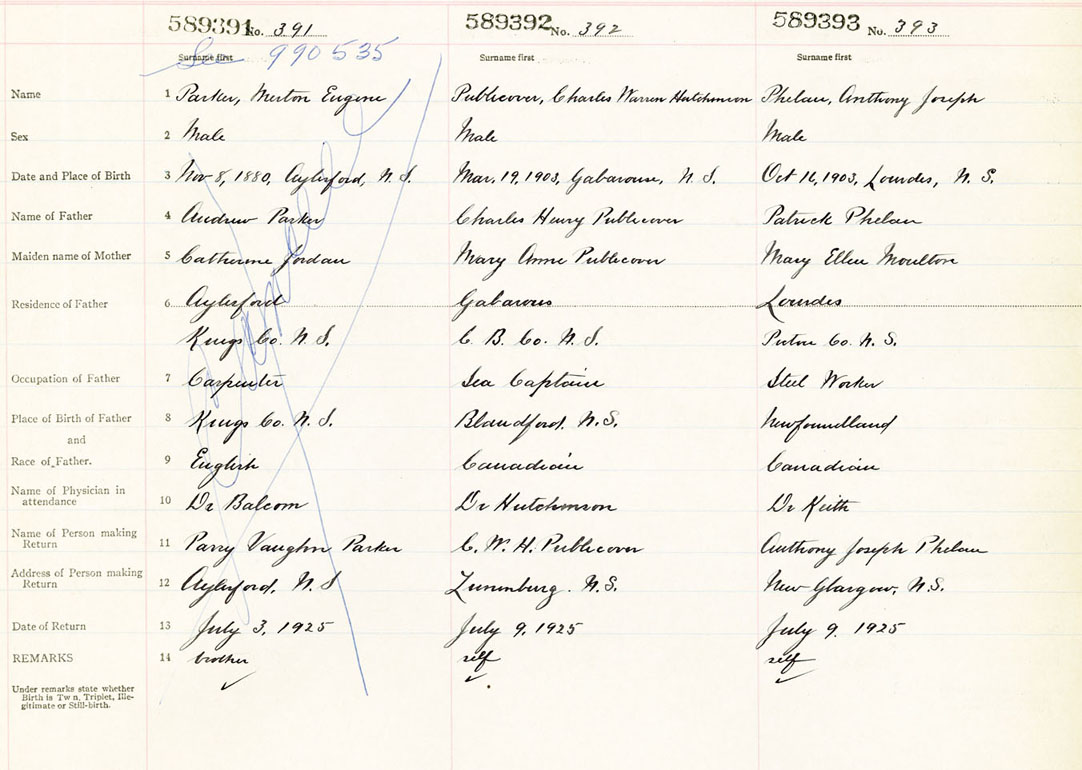 589391 No. 391 589392 No. 392 589393 No. 393
See 990535
Surname first Surname first Surname first
Name 1 Parker, Merton Eugene Publicover, Charles Warren Hutchinson Phelan, Anthony Joseph
Sex 2 Male Male Male
Date and Place of Birth 3 Nov 8, 1880, Aylesford, N. S. Mar. 19, 1903, Gabarouse, N. S. Oct 16, 1903, Lourdes, N. S.
Name of Father 4 Andrew Parker Charles Henry Publicover Patrick Phelan
Maiden name of Mother 5 Catherine Jordan Mary Anne Publicover Mary Ellen Moulton
Residence of Father 6 Aylesford Gabarous Lourdes
Kings Co. N. S. C. B. Co. N. S. Pictou Co. N. S.
Occupation of Father 7 Carpenter Sea Captain Steel Worker
Place of Birth of Father 8 Kings Co. N. S. Blandford. N. S. Newfoundland
and
Race of Father. 9 English Canadian Canadian
Name of Physician in
attendance 10 Dr Balcom Dr Hutchinson Dr Keith
Name of Person making
Return 11 Parry Vaughn Parker C. W. H. Publicover Anthony Joseph Phelan
Address of Person making
Return 12 Aylesford, N. S Lunenburg. N. S. New Glasgow, N. S.
Date of Return 13 July 3, 1925 July 9, 1925 July 9, 1925
REMARKS 14 brother self self
Under remarks state whether
Birth is Tw n, Triplet, Ille-
gitimate or Still-birth.
Cancelled